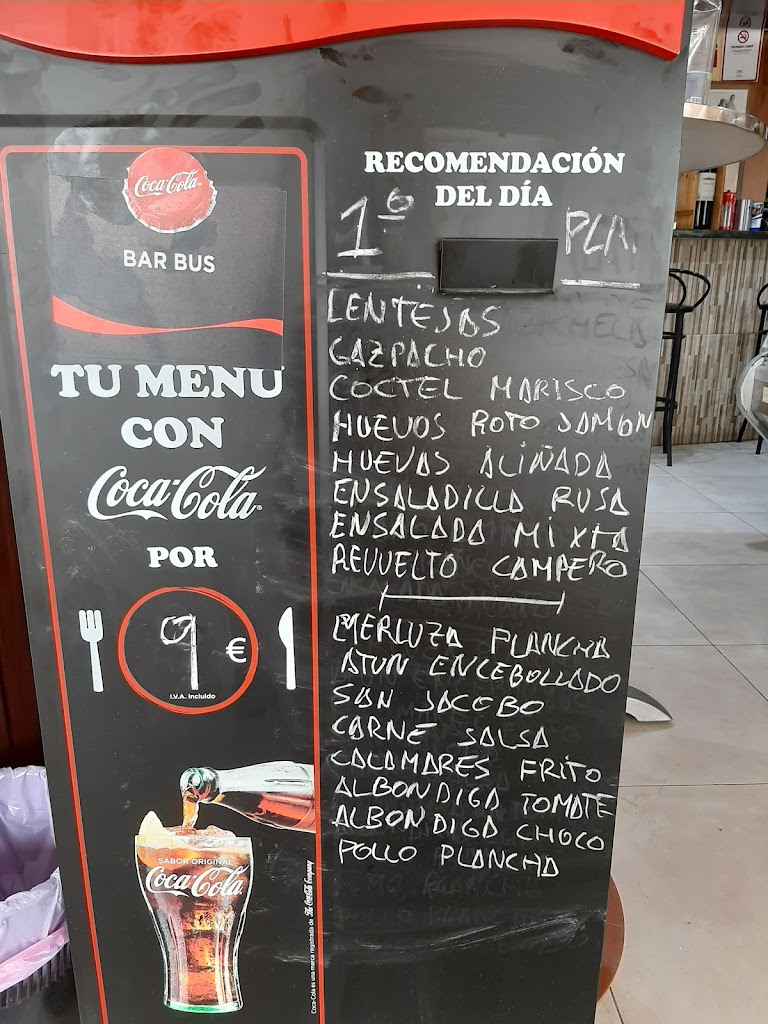 Coca-Cola
BAR BUS
TU MENU
CON
Coca-Cola
POR
9 €
I.V.A. Incluido
SABOR ORIGINAL
Coca-Cola
Coca-Cola es una marca registrada de The Coca-Cola Company
RECOMENDACIÓN
DEL DÍA
1º PLA.
LENTEJAS
GAZPACHO
COCTEL MARISCO
HUEVOS ROTO JAMON
HUEVAS ALIÑADA
ENSALADILLA RUSA
ENSALADA MIXTA
REVUELTO CAMPERO
MERLUZA PLANCHA
ATUN ENCEBOLLADO
SAN JACOBO
CARNE SALSA
CALAMARES FRITO
ALBONDIGA TOMATE
ALBONDIGA CHOCO
POLLO PLANCHA